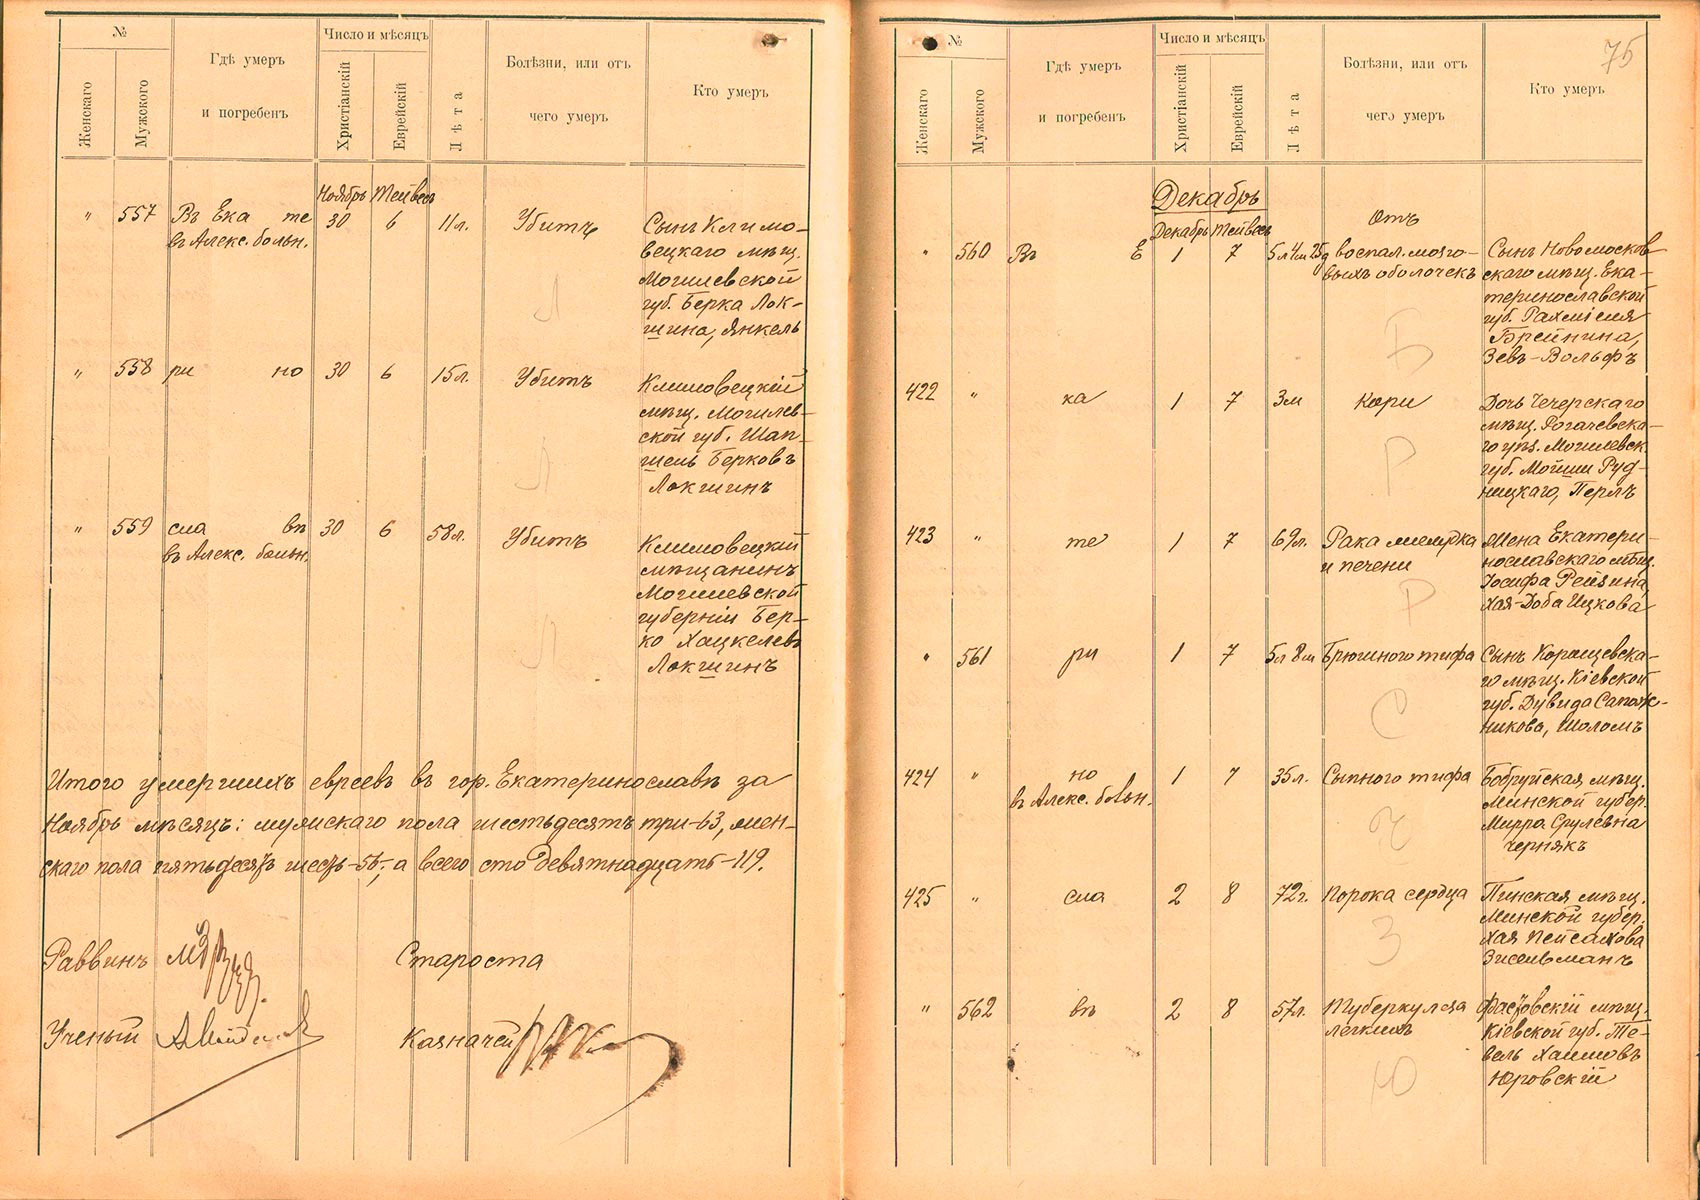 №
Женскаго
Мужского
Гдѣ умеръ
и погребенъ
Число и мѣсяцъ
Христіанскій
Еврейскій
Лѣта
Болѣзни, или отъ
чего умеръ
Кто умеръ
Ноябрь Тейвесъ
" 557 Въ Ека те 30 6 11 л. Убитъ Сынъ Климо-
въ Алекс. больн.
вецкаго мѣщ.
Могилевской
губ. Берка Лок-
шина, Янкель
Л
" 558 ри но 30 6 15 л. Убитъ Климовецкій
мѣщ. Могилев-
ской губ. Шап-
шель Берковъ
Локшинъ
Л
" 559 сла вѣ 30 6 58 л. Убитъ Климовецкий
въ Алекс. больн.
мѣщанинъ
Могилевской
губерніи Бер-
ко Хацкелевъ
Локшинъ
Л
Итого умершихъ евреевъ въ гор. Екатеринославѣ за
Ноябрь мѣсяцъ: мужскаго пола шестьдесятъ три-63, жен-
скаго пола пятьдесятъ шесть-56, а всего сто девятнадцать-119.
Раввинъ
Староста
Ученый
Казначей
75
№
Женскаго
Мужского
Гдѣ умеръ
и погребенъ
Число и мѣсяцъ
Христіанскій
Еврейскій
Лѣта
Болѣзни, или отъ
чего умеръ
Кто умеръ
Декабрь
Декабрь Тейвесъ
Отъ
" 560 Въ Е 1 7 5 л 4 м 25 д воспал. мозго- Сынъ Новомосков
выхъ оболочекъ скаго мѣщ. Ека-
теринославской
губ. Рахміеля
Брейнина,
Зевъ-Вольфъ
Б
422 " ка 1 7 3 м Кори Дочь Чечерскаго
мѣщ. Рогачевска-
го уѣз. Могилевск.
губ. Мойши Руд-
ницкаго, Перлъ
Р
423 " те 1 7 69 л. Рака желудка Жена Екатери-
и печени нославскаго мѣщ.
Іосифа Рейзина
Хая-Доба Ицкова
Р
" 561 ри 1 7 5 л 8 м Брюшного тифа Сынъ Коращевска-
го мѣщ. Кіевской
губ. Дувида Сапож-
никова, Шоломъ
С
424 " но 1 7 35 л. Сыпного тифа Бобруйская мѣщ.
въ Алекс. больн.
Минской губер.
Мирра Срулевна
Чернякъ
Ч
425 " сла 2 8 72 г. Порока сердца Пинская мѣщ.
Минской губер.
Хая Пейсахова
Зисельманъ
З
" 562 вѣ 2 8 57 л. Туберкулеза Фастовскій мѣщ.
легкихъ Кіевской губ. Те-
вель Хаимовъ
Юровскій
Ю